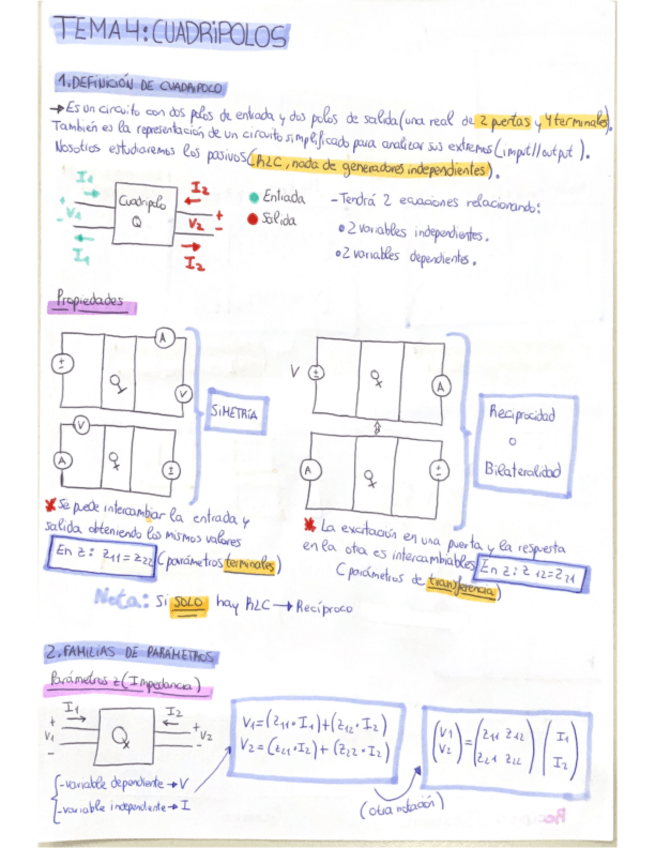 TEMA 4: CUADRIPOLOS
1. DEFINICIÓN DE CUADRIPOLO
→ Es un circuito con dos polos de entrada y dos polos de salida (una real de 2 puertas y 4 terminales).
También es la representación de un circuito simplificado para analizar sus extremos (imput//output).
Nosotros estudiaremos los pasivos (RLC, nada de generadores independientes).
I1 I2
+ V1 - Cuadripolo Q + V2 -
I1 I2
Entrada
Salida
- Tendrá 2 ecuaciones relacionando:
• 2 variables independientes.
• 2 variables dependientes.
Propiedades
A
± Q V
SIMETRÍA
V
A Q ±
V ± Q A
Reciprocidad
o
Bilateralidad
A Q ±
* Se puede intercambiar la entrada y
salida obteniendo los mismos valores
En z: z11 = z22 (parámetros terminales)
* La excitación en una puerta y la respuesta
en la otra es intercambiables En z: z12 = z21
(parámetros de transferencia)
Nota: Si SOLO hay RLC → Recíproco
2. FAMILIAS DE PARÁMETROS
Parámetros z (Impedancia)
I1 I2
+ V1 - Qx + V2 -
- variable dependiente → V
- variable independiente → I
V1 = (z11 · I1) + (z12 · I2)
V2 = (z21 · I2) + (z22 · I2)
(V1 V2) = (z11 z12 z21 z22) (I1 I2)
(otra notación)